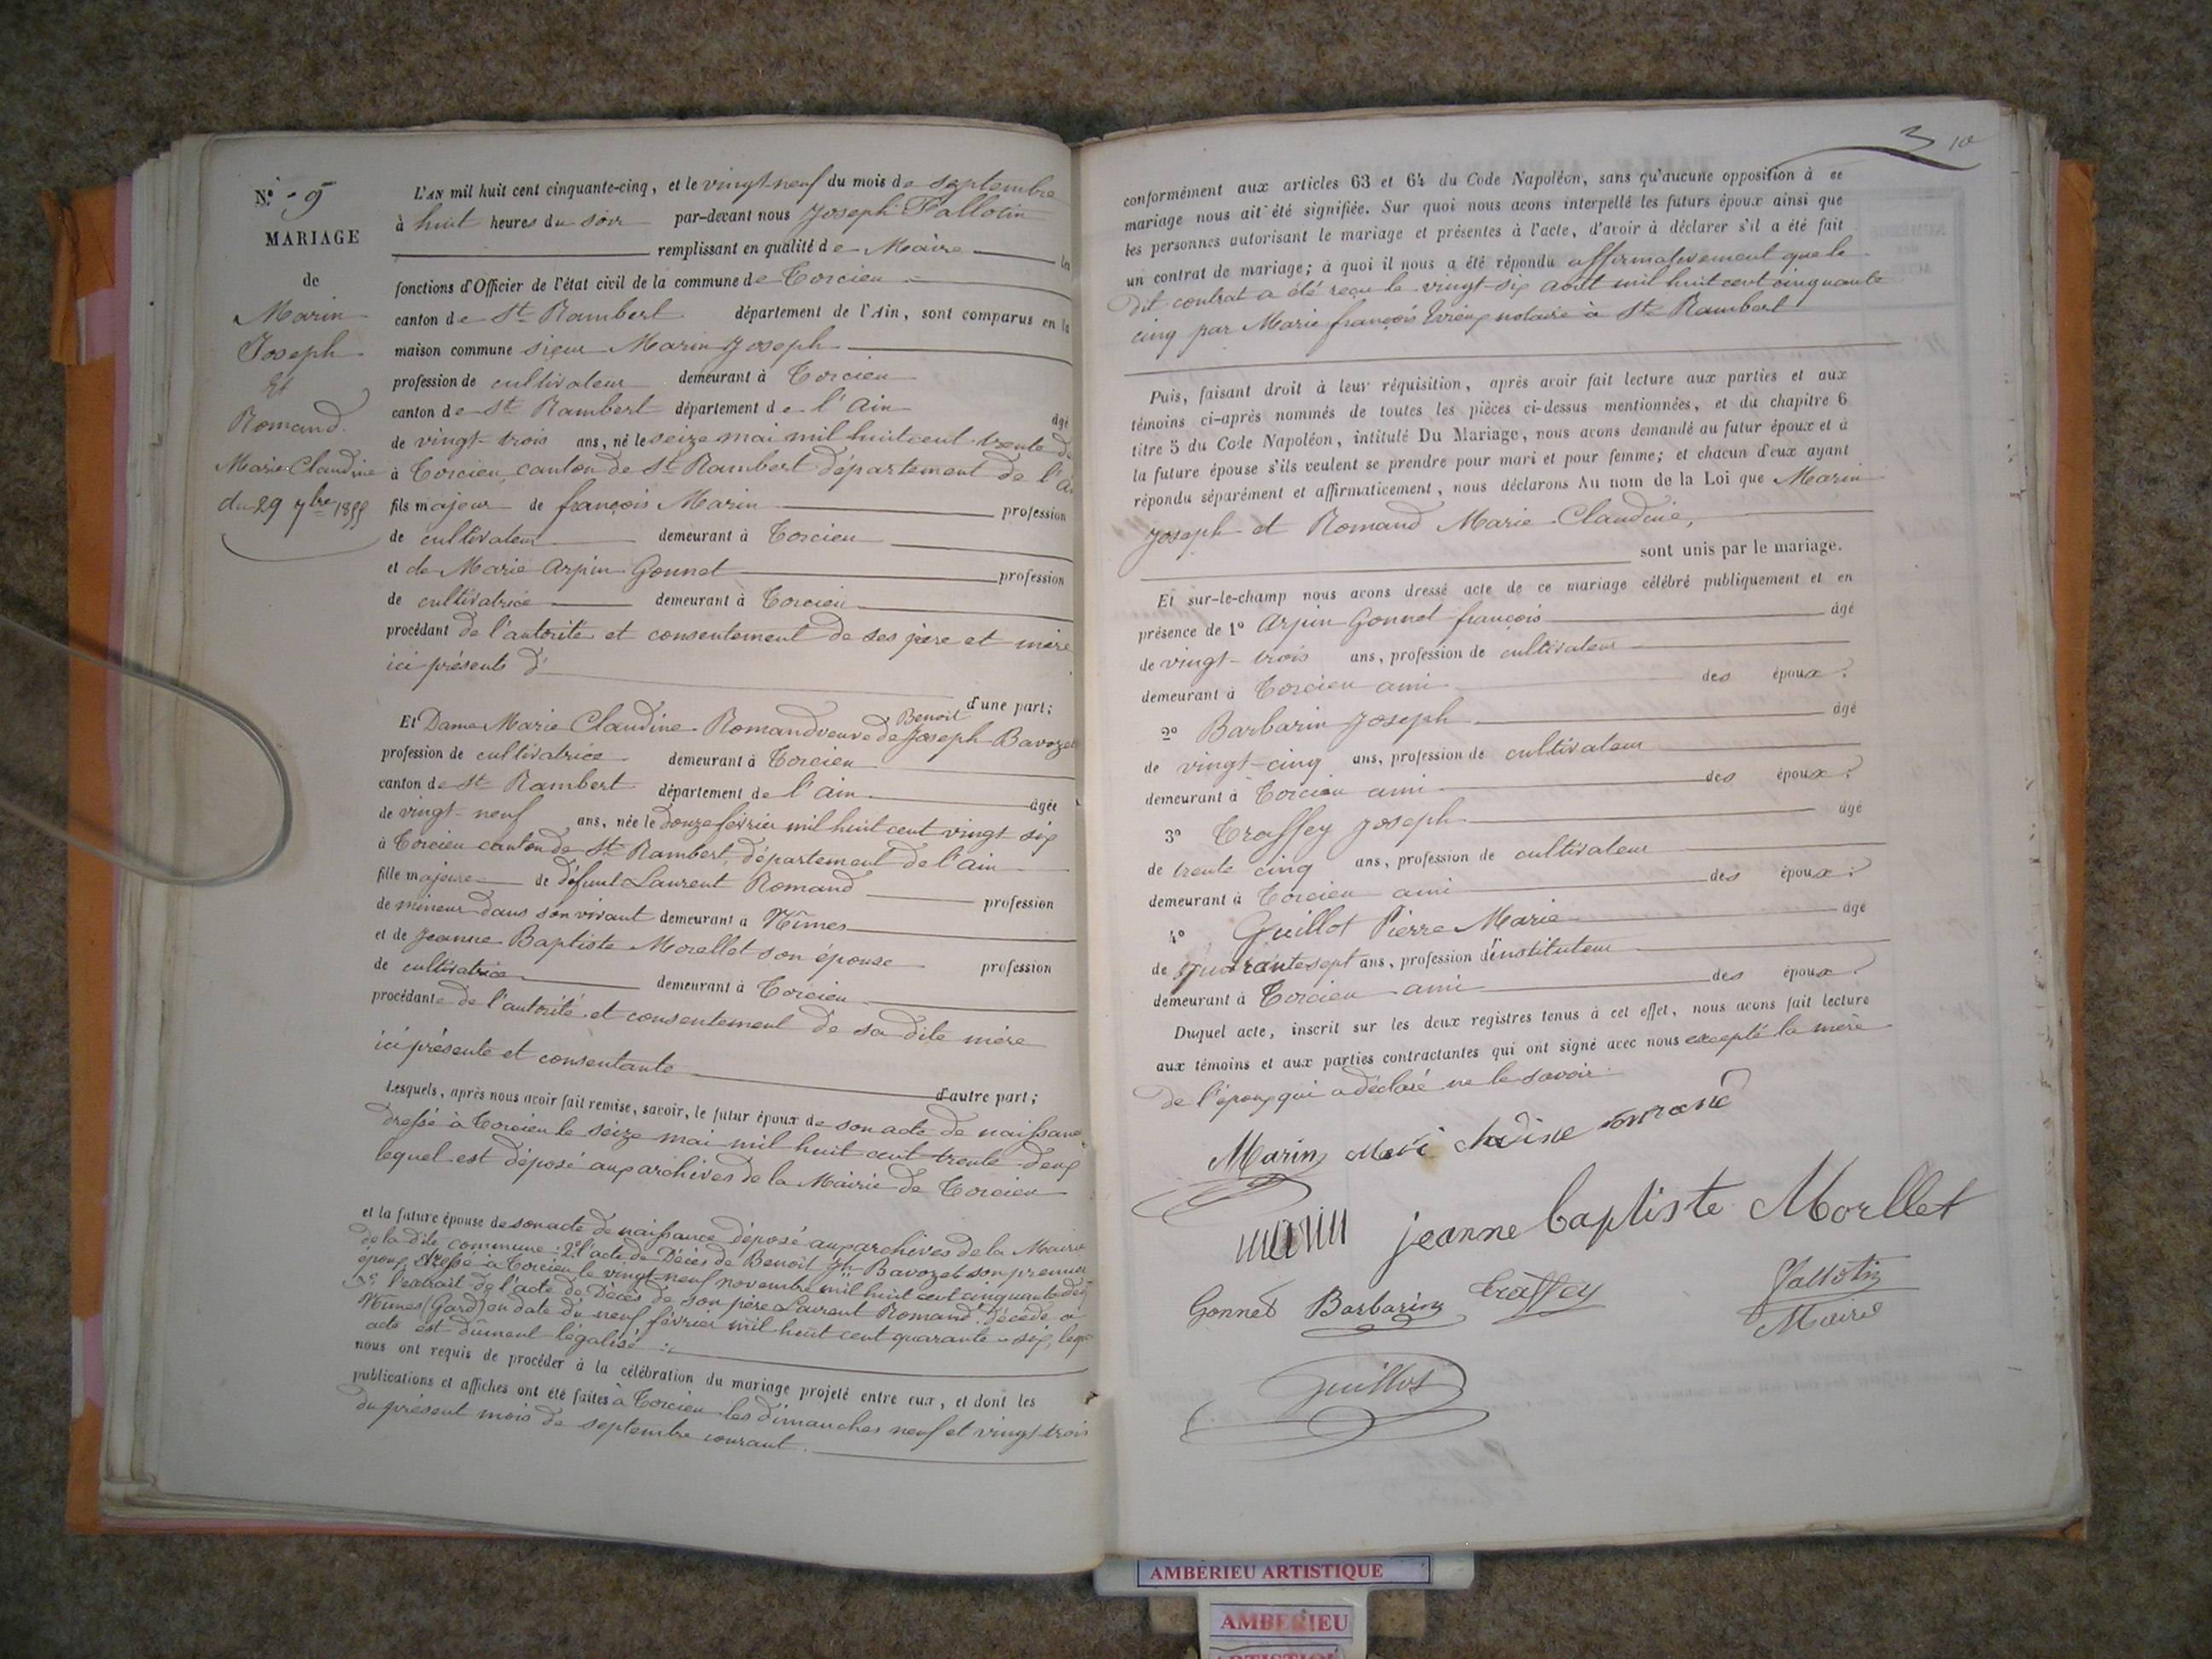 N.º 9
MARIAGE
de
Marin
Joseph
Et
Romand
Marie Claudine
du 29 7bre 1855
L'AN mil huit cent cinquante-cinq, et le vingt-neuf du mois de septembre
à huit heures du soir par-devant nous Joseph Fallotin
remplissant en qualité de Maire les
fonctions d'Officier de l'état civil de la commune de Torcieu
canton de St Rambert département de l'Ain, sont comparus en la
maison commune sieur Marin Joseph
profession de cultivateur demeurant à Torcieu
canton de St Rambert département de l'Ain âgé
de vingt-trois ans, né le seize mai mil huit cent trente d
à Torcieu, canton de St Rambert département de l'a
fils majeur de françois Marin profession
de cultivateur demeurant à Torcieu
et de Marie Arpin Gonnet profession
de cultivatrice demeurant à Torcieu
procédant de l'autorité et consentement de ses père et mère
ici présents d'
d'une part;
Benoit
Et Dame Marie Claudine Romand veuve de Joseph Bavozet
profession de cultivatrice demeurant à Torcieu
canton de St Rambert département de l'ain âgée
de vingt-neuf ans, née le douze février mil huit cent vingt six
à Torcieu canton de St Rambert, département de l'ain
fille majeure de défunt Laurent Romand profession
de mineur dans son vivant demeurant a Nîmes
et de Jeanne Baptiste Morellet son épouse profession
de cultivatrice demeurant à Torcieu
procédante de l'autorité et consentement de sa dite mère
ici présente et consentante
d'autre part;
Lesquels, après nous avoir fait remise, savoir, le futur époux de son acte de naissance
dressé à Torcieu le seize mai mil huit cent trente deux
lequel est déposé aux archives de la Mairie de Torcieu
et la future épouse de son acte de naissance déposé aux archives de la Mairie
de la dite commune: 2º l'acte de Décès de Benoit Jh Bavozet son premier
époux dressé à Torcieu le vingt-neuf novembre mil huit cent cinquante deux
3º l'extrait de l'acte de Décès de son père Laurent Romand. Décédé, à
Nîmes (Gard) en date du neuf février mil huit cent quarante-six, lequel
acte est dûment légalisé
nous ont requis de procéder à la célébration du mariage projeté entre eux, et dont les
publications et affiches ont été faites à Torcieu les dimanches neuf et vingt-trois
du présent mois de septembre courant.
3
10
conformément aux articles 63 et 64 du Code Napoléon, sans qu'aucune opposition à ce
mariage nous ait été signifiée. Sur quoi nous avons interpellé les futurs époux ainsi que
les personnes autorisant le mariage et présentes à l'acte, d'avoir à déclarer s'il a été fait
un contrat de mariage; à quoi il nous a été répondu affirmativement que le
dit contrat a été reçu le vingt-six août mil huit cent cinquante
cinq par Marie françois notaire à St Rambert
Puis, faisant droit à leur réquisition, après avoir fait lecture aux parties et aux
témoins ci-après nommés de toutes les pièces ci-dessus mentionnées, et du chapitre 6
titre 5 du Code Napoléon, intitulé Du Mariage, nous avons demandé au futur époux et à
la future épouse s'ils veulent se prendre pour mari et pour femme; et chacun d'eux ayant
répondu séparément et affirmativement, nous déclarons Au nom de la Loi que Marin
Joseph et Romand Marie Claudine,
sont unis par le mariage.
Et sur-le-champ nous avons dressé acte de ce mariage célébré publiquement et en
présence de 1º Arpin Gonnet françois âgé
de vingt-trois ans, profession de cultivateur
demeurant à Torcieu ami des époux.
2º Barbarin Joseph âgé
de vingt-cinq ans, profession de cultivateur
demeurant à Torcieu ami des époux.
3º Traffey Joseph âgé
de trente cinq ans, profession de cultivateur
demeurant à Torcieu ami des époux.
4º Guillot Pierre Marie âgé
de quarante sept ans, profession d'instituteur
demeurant à Torcieu ami des époux.
Duquel acte, inscrit sur les deux registres tenus à cet effet, nous avons fait lecture
aux témoins et aux parties contractantes qui ont signé avec nous excepté la mère
de l'époux qui a déclaré ne le savoir.
Marin
marin jeanne baptiste Morllet
Gonnet Barbarin Traffey Fallotin
Maire
Guillot
AMBÉRIEU ARTISTIQUE
AMBERIEU
ARTISTIQUE